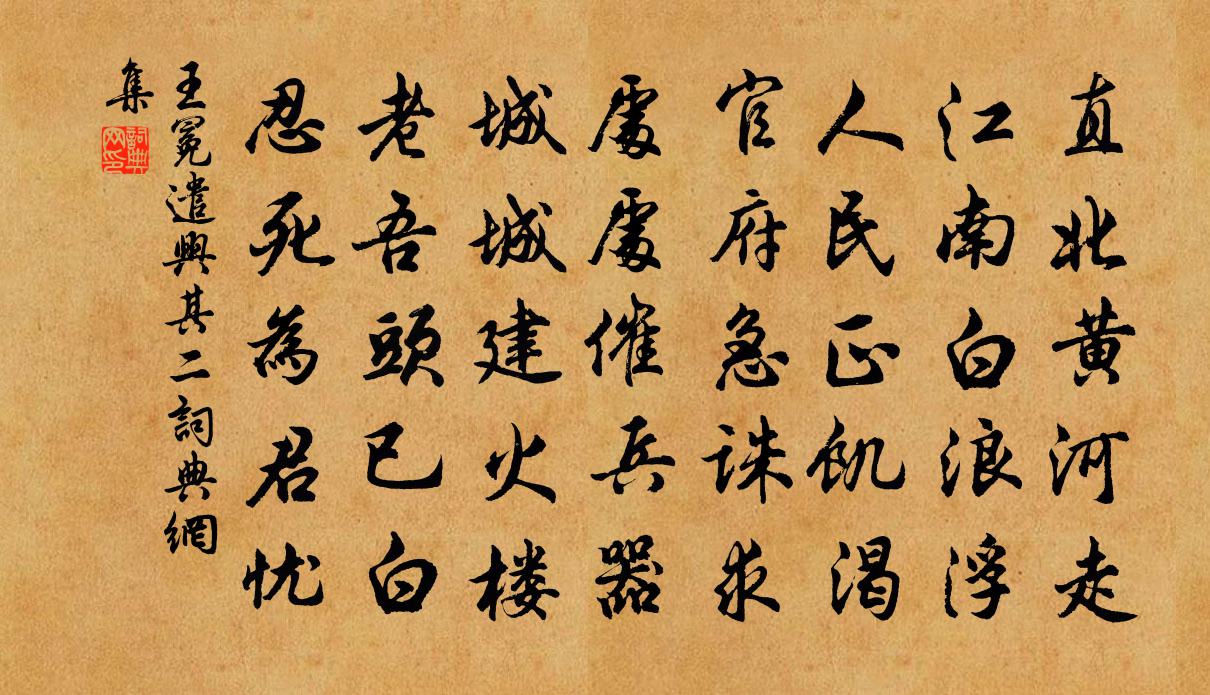 直北黄河走
江南白浪浮
人民正飢渴
官府急誅求
處處催兵器
城城建火楼
老吾頭已白
忍死為君忧
王冕遣興其二詞典網
集
詞典網印